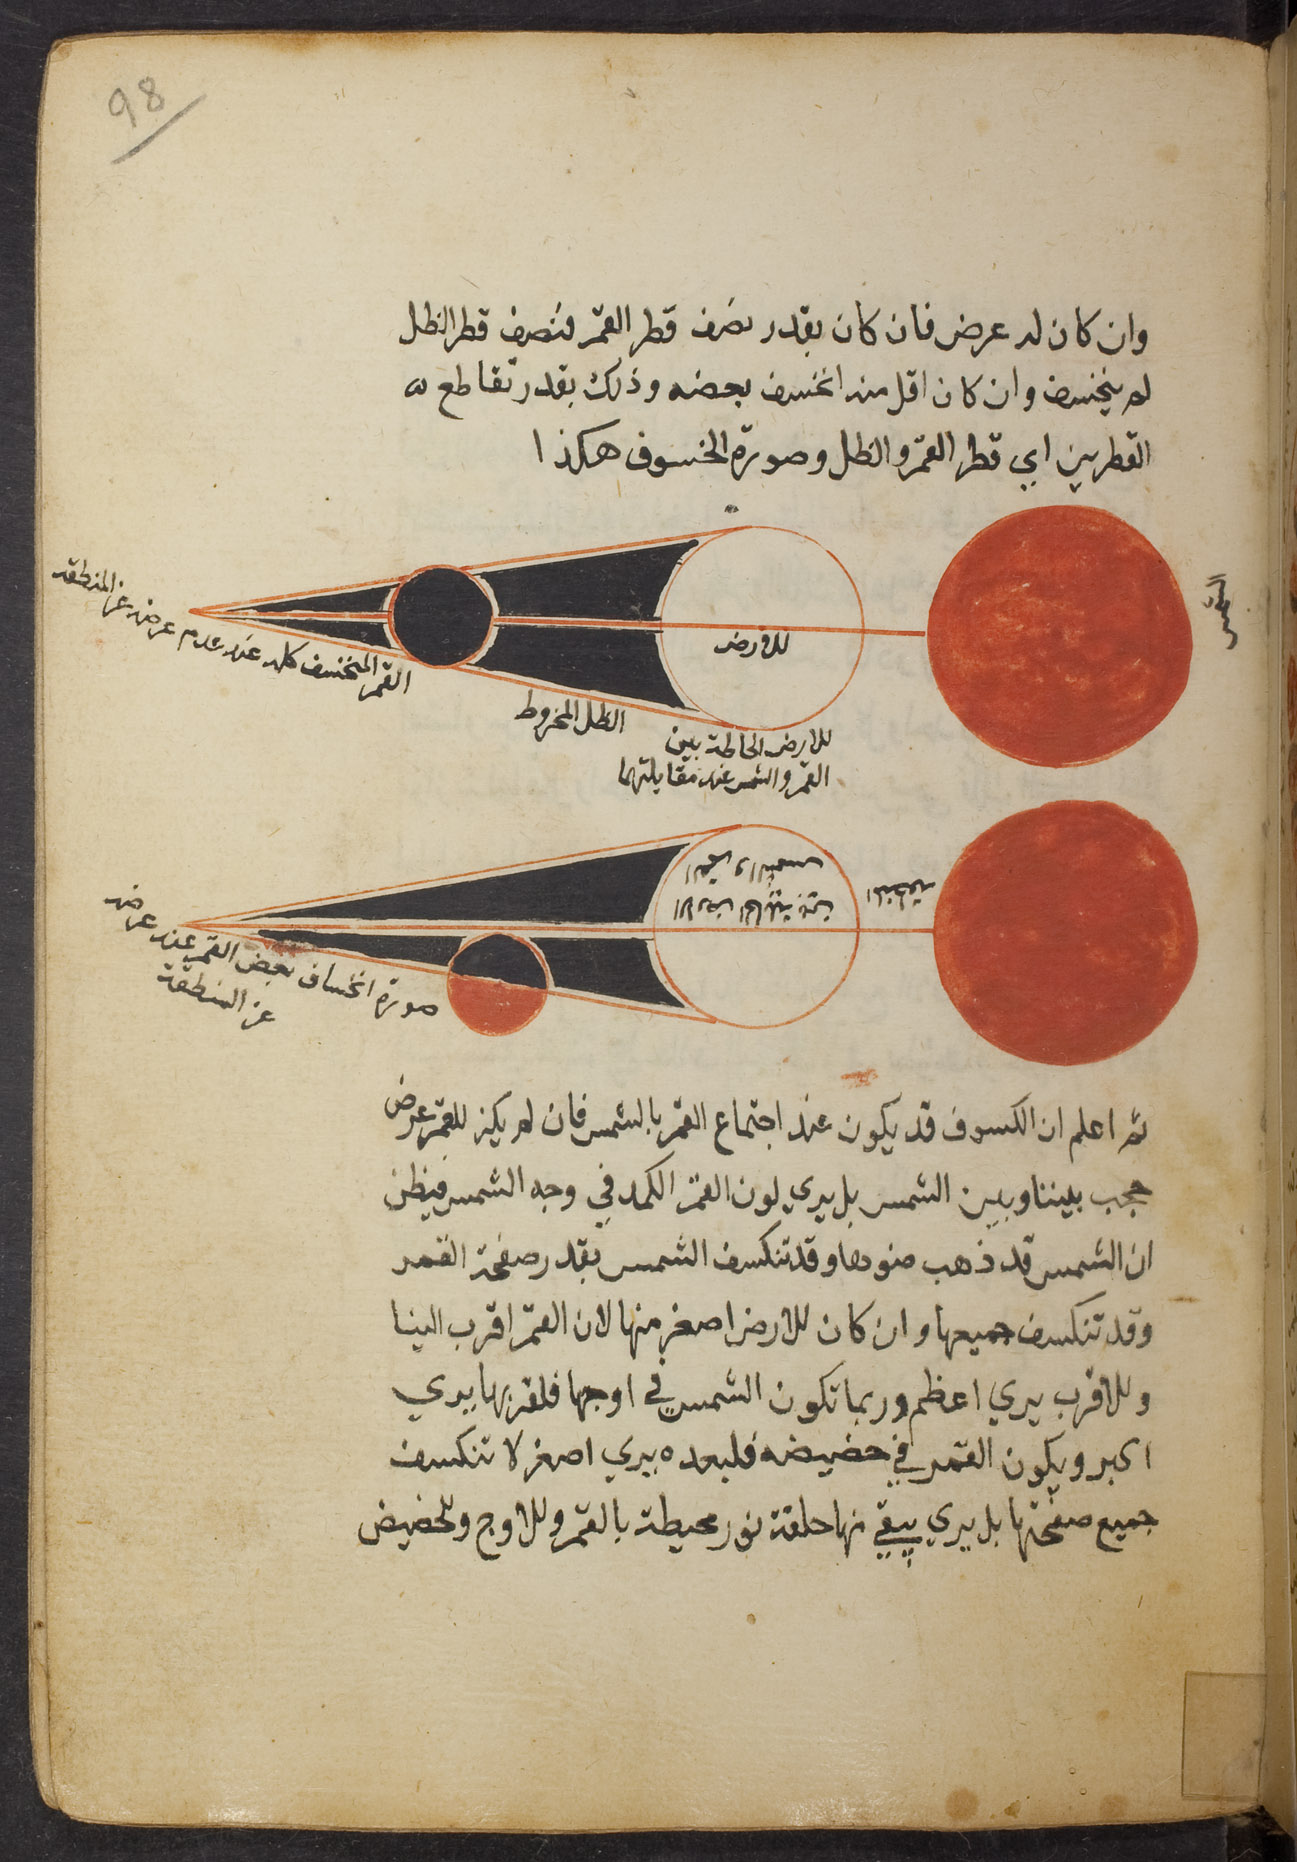 98
وان كان له عرض فان كان بقدر نصف قطر القمر فنصف قطر الظل
لم ينخسف وان كان اقل منه انخسف بعضه وذلك بقدر تقاطع
القطرين اي قطر القمر والظل وصورة الخسوف هكذا
الشمس
الارض
القمر المنخسف كله عند عدم عرضه عن المنطقه
الظل المخروط
الارض الحائلة بين
القمر والشمس عند مقابلتهما
الارض الحائلة بين
القمر والشمس
صورة انخساف بعض القمر عند عرضه
عن المنطقة
ثم اعلم ان الكسوف قد يكون عند اجتماع القمر بالشمس فان لم يكن للقمر عرض
حجب بيننا وبين الشمس بل يري لون القمر الكمد في وجه الشمس فيظن
ان الشمس قد ذهب ضوءها وقد تنكسف الشمس بقدر صفحة القمر
وقد تنكسف جميعها وان كان الارض اصغر منها لان القمر اقرب الينا
والاقرب يري اعظم وربما تكون الشمس في اوجها فلقربها يري
اكبر ويكون القمر في حضيضه فلبعده يري اصغر لا تنكسف
جميع صفحتها بل يري يبقي منها حلقة نور محيطة بالقمر والاوج والحضيض